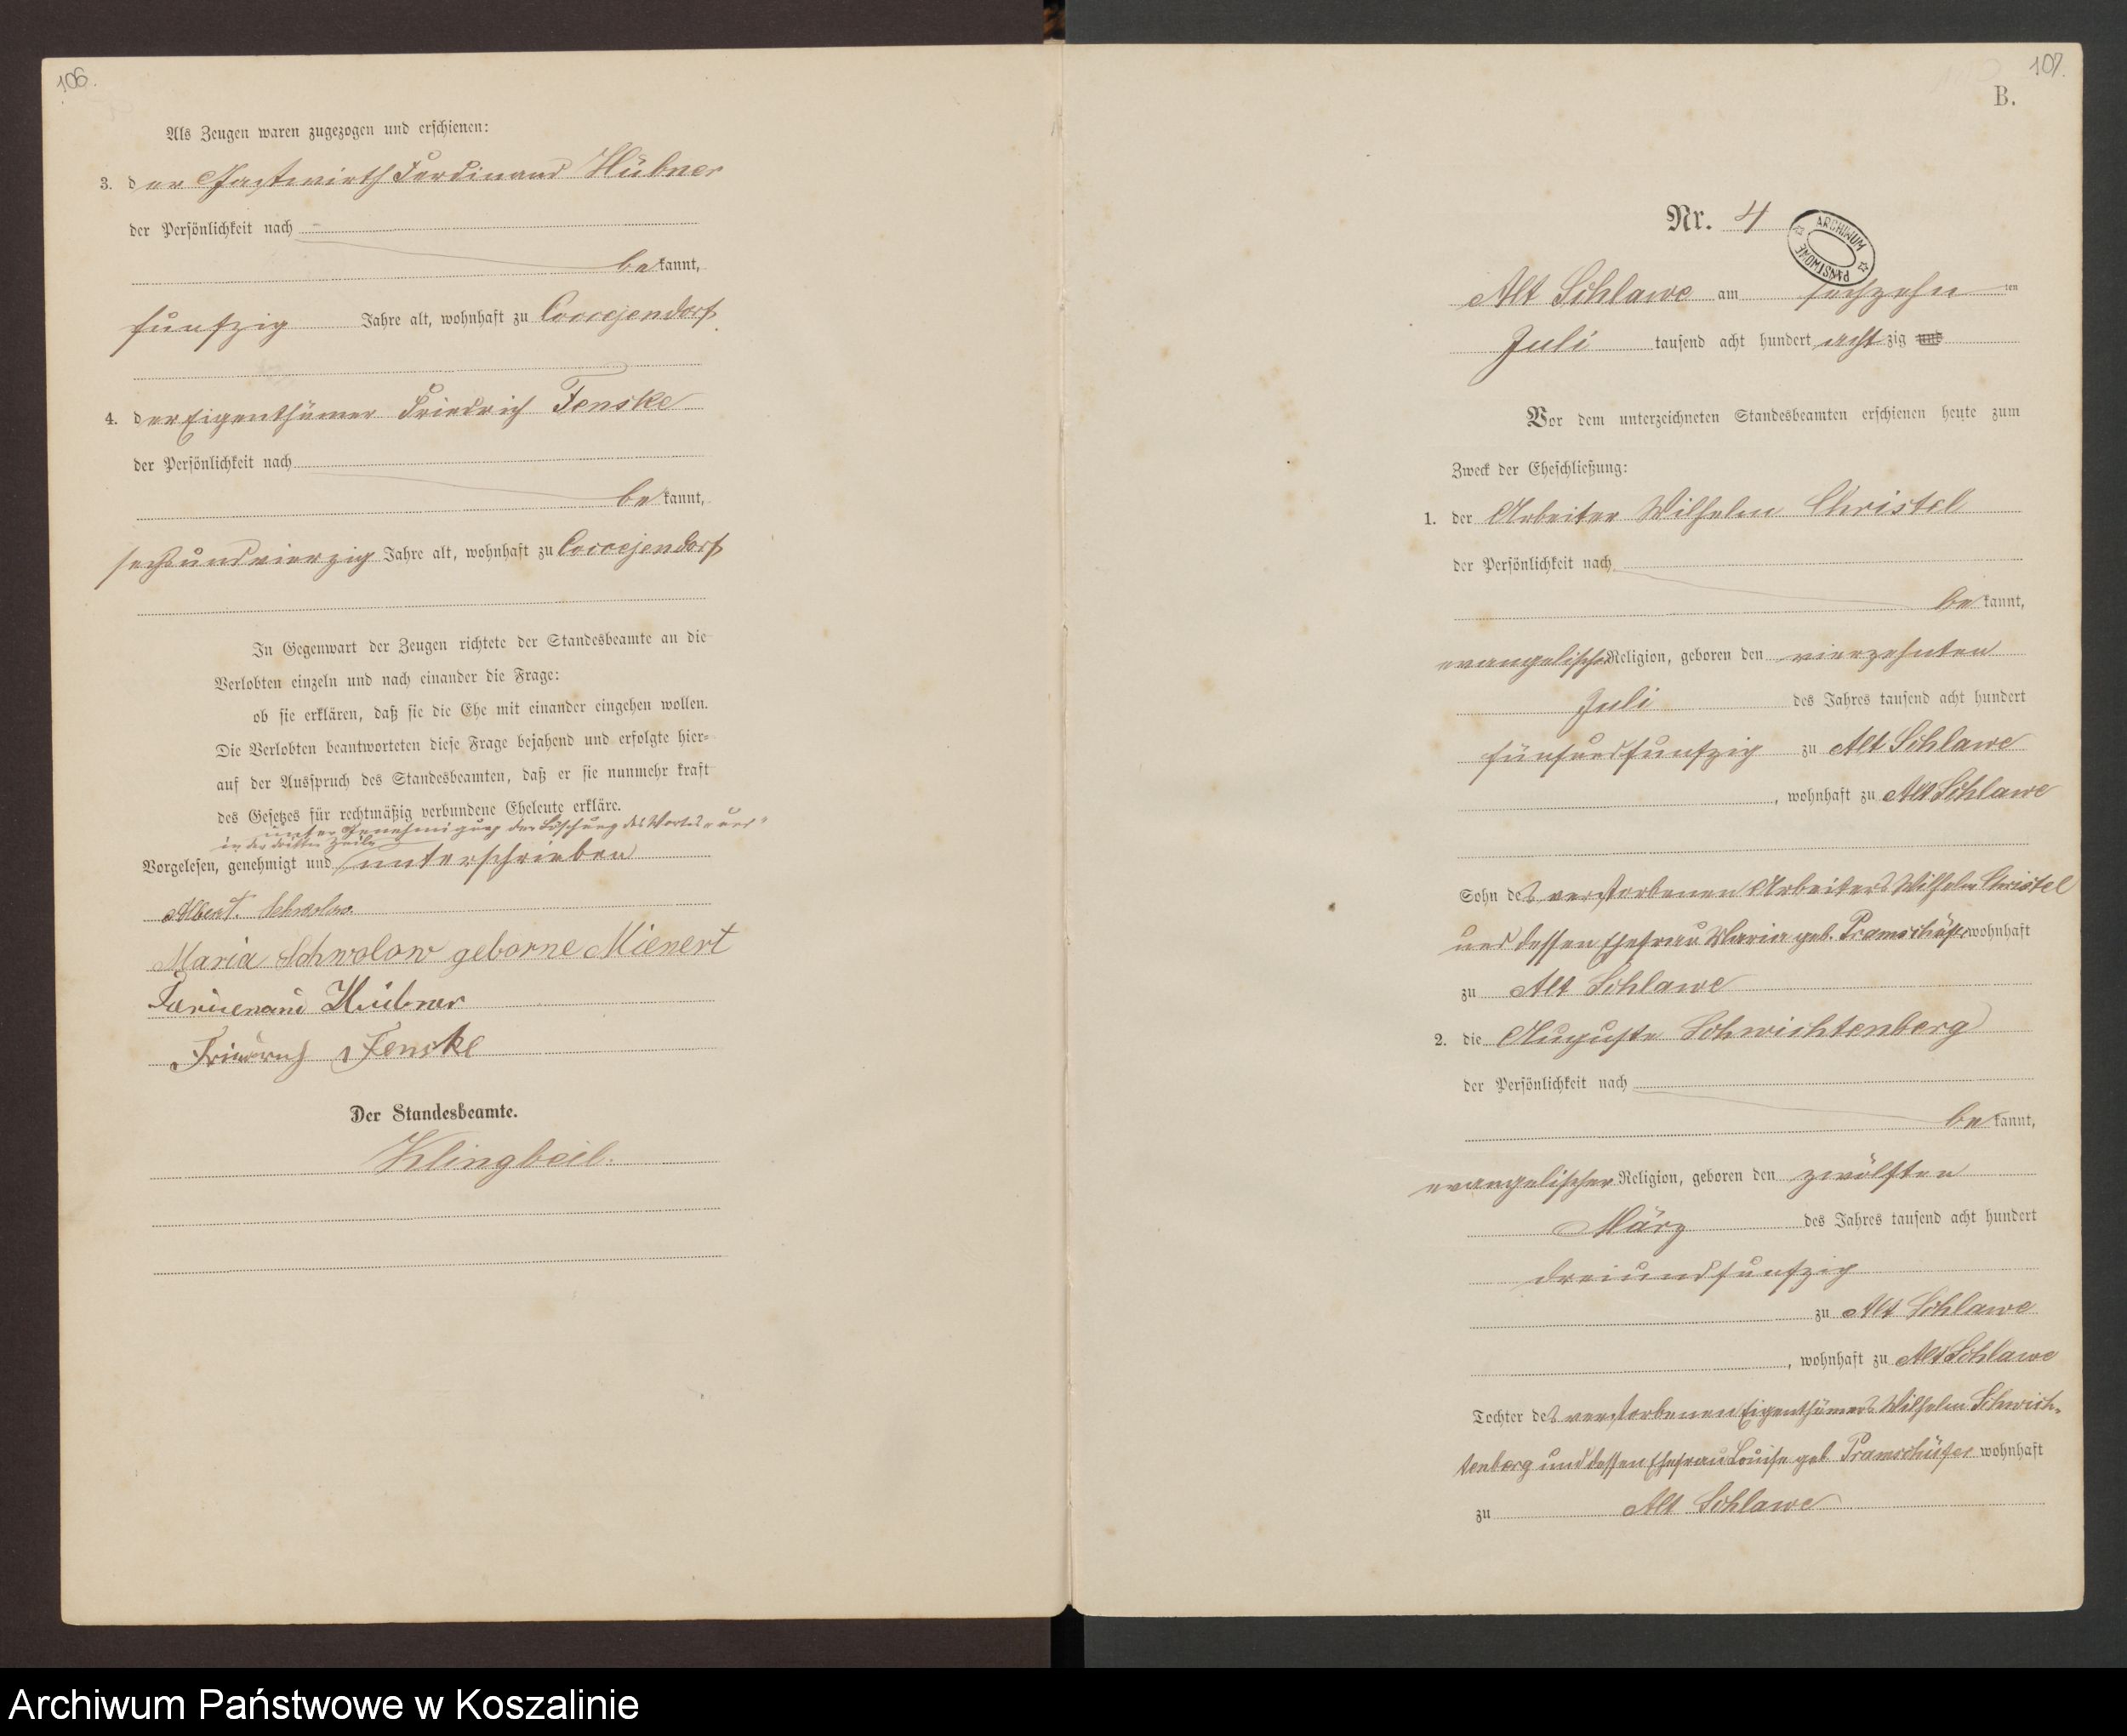 106.
Als Zeugen waren zugezogen und erschienen:
3. der Gastwirth Ferdinand Hübner
der Persönlichkeit nach
bekannt,
funfzig Jahre alt, wohnhaft zu Coccejendorf
4. der Eigenthümer Friedrich Fenske
der Persönlichkeit nach
bekannt,
sechsundvierzig Jahre alt, wohnhaft zu Coccejendorf
In Gegenwart der Zeugen richtete der Standesbeamte an die
Verlobten einzeln und nach einander die Frage:
ob sie erklären, daß sie die Ehe mit einander eingehen wollen.
Die Verlobten beantworteten diese Frage bejahend und erfolgte hier=
auf der Ausspruch des Standesbeamten, daß er sie nunmehr kraft
des Gesetzes für rechtmäßig verbundene Eheleute erkläre.
unter Genehmigung der Löschung des Wortes „und"
in der dritten Zeile
Vorgelesen, genehmigt und unterschrieben
Albert Schwolow
Maria Schwolow geborne Mienert
Ferdienand Hübner
Friedrich Fenske
Der Standesbeamte.
Klingbeil.
107.
B.
Nr. 4
ARCHIWUM PAŃSTWOWE
Alt Schlawe am sechzehnten
Juli tausend acht hundert achtzig und
Vor dem unterzeichneten Standesbeamten erschienen heute zum
Zweck der Eheschließung:
1. der Arbeiter Wilhelm Christel
der Persönlichkeit nach
bekannt,
evangelischer Religion, geboren den vierzehnten
Juli des Jahres tausend acht hundert
fünfundfunfzig zu Alt Schlawe
, wohnhaft zu Alt Schlawe
Sohn des verstorbenen Arbeiters Wilhelm Christel
und dessen Ehefrau Maria geb. Pramschüfer wohnhaft
zu Alt Schlawe
2. die Auguste Schwichtenberg
der Persönlichkeit nach
bekannt,
evangelischer Religion, geboren den zwölften
März des Jahres tausend acht hundert
dreiundfunfzig
zu Alt Schlawe
, wohnhaft zu Alt Schlawe
Tochter des verstorbenen Eigenthümers Wilhelm Schwich-
tenberg und dessen Ehefrau Louise geb Pramschüfer wohnhaft
zu Alt Schlawe
Archiwum Państwowe w Koszalinie